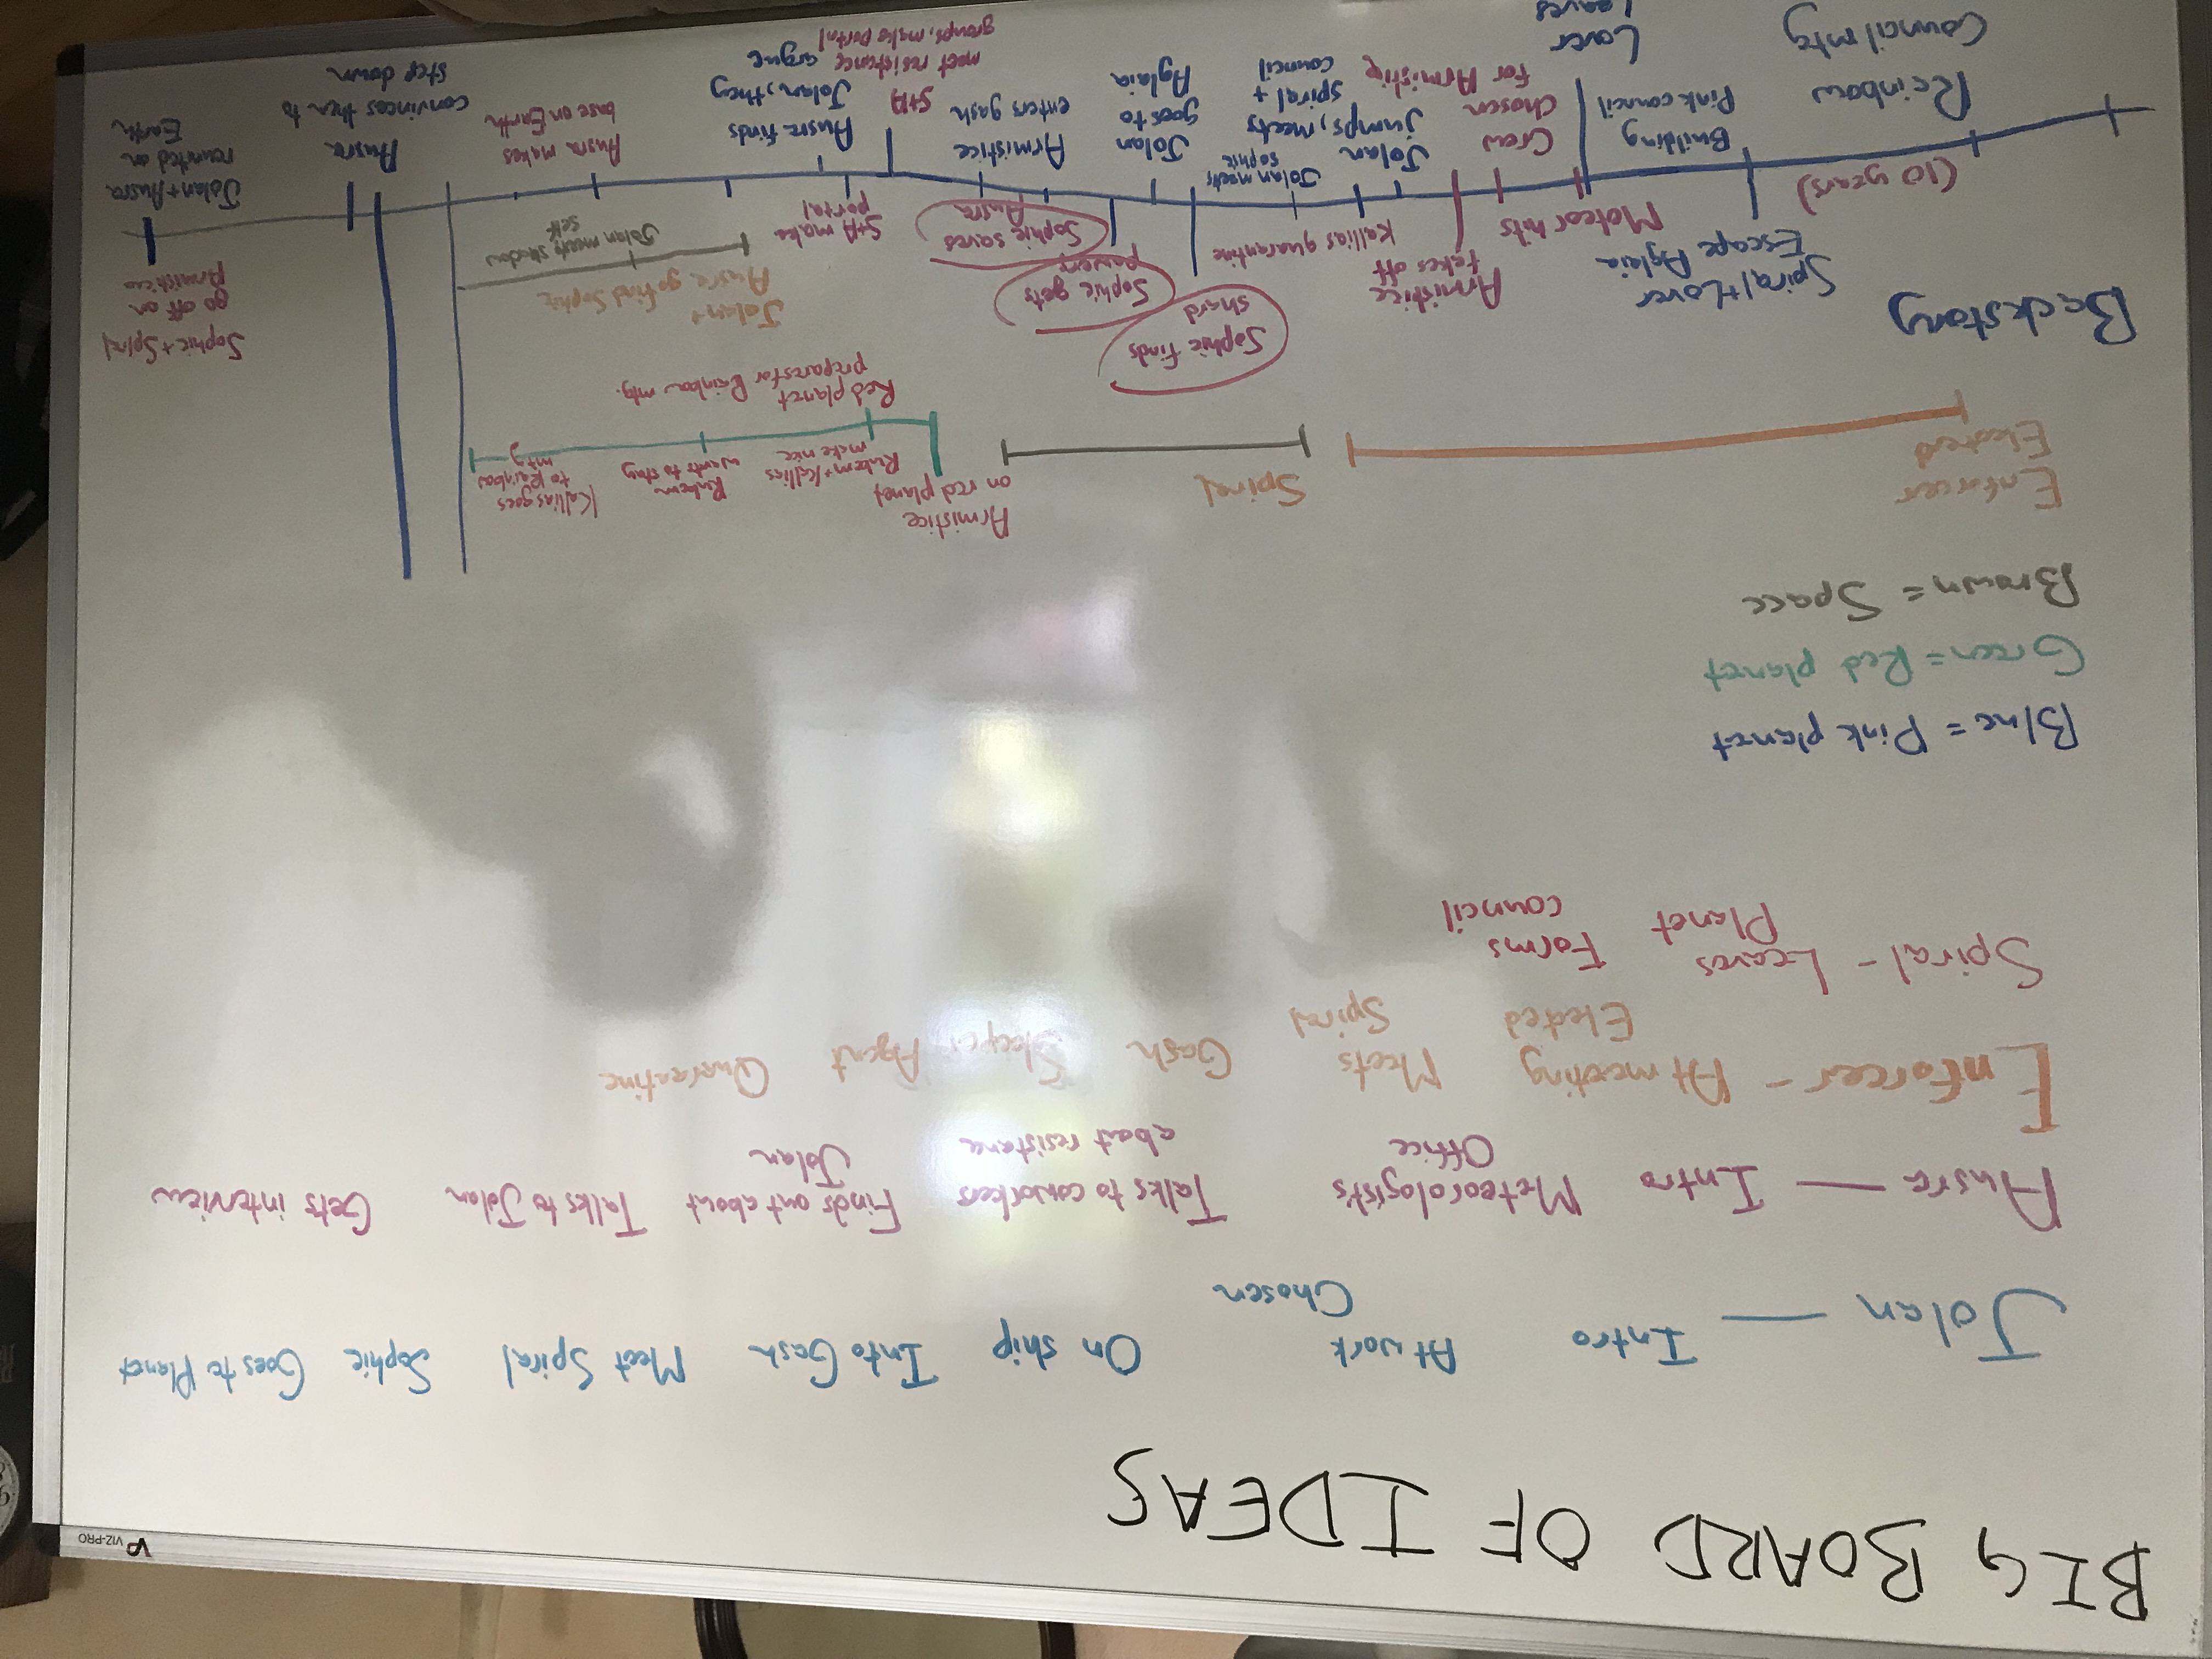 BIG BOARD OF IDEAS
VP VIZ-PRO
Jolan — Intro At work On ship Into Gash Meet Spiral Sophie Goes to Planet
Chosen
Ausra — Intro Meteorologist's Talks to coworkers Finds out about Talks to Jolan Gets interview
Office about resistance Jolan
Enforcer - At meeting Meets Gash Sleeper Agent Quarantine
Elected Spiral
Spiral - Leaves Forms
Planet council
Blue = Pink planet
Green = Red planet
Brown = Space
Enforcer
Elected
Spiral
Armistice
on red planet
Rubem + Kallias
make nice
Rubem
wants to stay
Kallias goes
to Rainbow
mtg
Red planet
prepares for Rainbow mtg.
Backstory
(10 years)
Spiral + Lover
Escape Aglaia
Meteor hits
Armistice
takes off
Kallias quarantine
Sophie finds
shard
Sophie gets
powers
Sophie saves
Ausra
S+A make
portal
Jolan +
Ausra go find Sophie
Jolan meets shadow
self
Sophie + Spiral
go off on
Armistice
Rainbow
Council mtg
Building
Pink council
Lover
Leaves
Crew
chosen
for Armistice
Jolan
jumps, meets
spiral +
council
Jolan meets
Sophie
Jolan
goes to
Aglaia
Armistice
enters gash
S+A
meet resistance
groups, make portal
Ausra finds
Jolan, they
argue
Ausra makes
base on Earth
Ausra
convinces them to
step down
Jolan + Ausra
reunited on
Earth